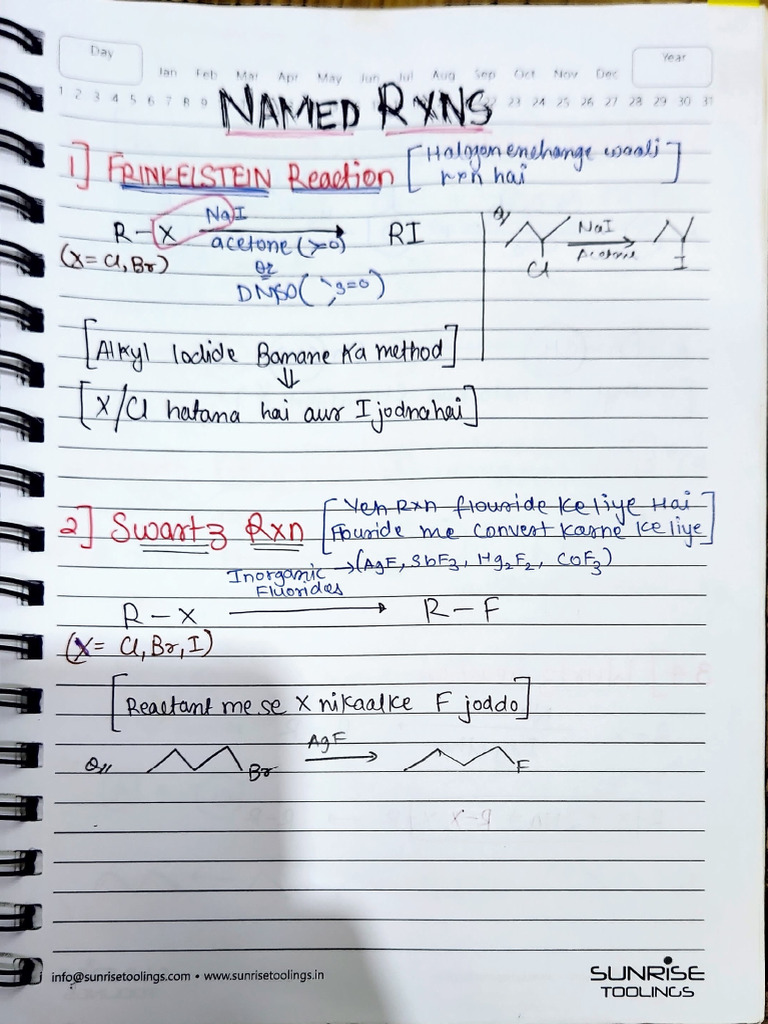 Day
Year
Jan Feb Mar Apr May Jun Jul Aug Sep Oct Nov Dec
1 2 3 4 5 6 7 8 9 23 24 25 26 27 28 29 30 31
NAMED RXNS
1] FRINKELSTEIN Reaction [Halogen enchange waali
rxn hai]
R-X NaI RI
acetone (>=O)
(X = Cl, Br)
or
DMSO ( >S=O)
Q// NaI
Acetone
Cl I
[Alkyl Iodide Banane Ka method]
⇓
[X/Cl hatana hai aur I jodna hai]
2] Swartz Rxn [Yeh Rxn flouride ke liye Hai
Flouride me convert karne ke liye]
Inorganic Fluorides →(AgF, SbF3, Hg2F2, CoF3)
R-X → R-F
(X = Cl, Br, I)
[Reactant me se X nikaalke F joddo]
Q// Br AgF → F
info@sunrisetoolings.com • www.sunrisetoolings.in
SUNRISE
TOOLINGS